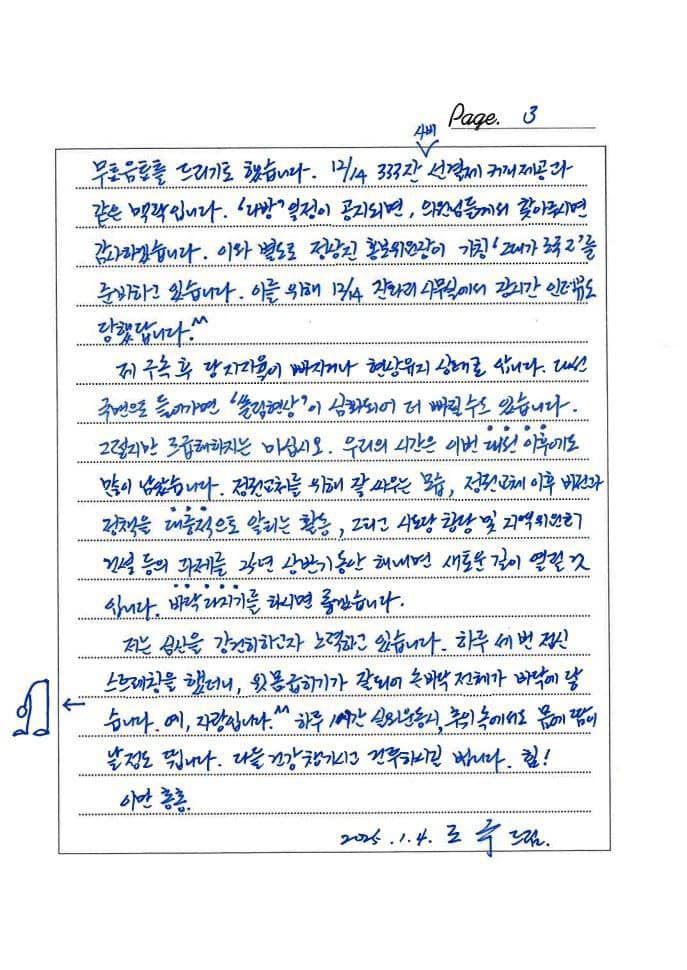 Page. 3
사비
무료음료를 드리기로 했습니다. 12/14 333잔 선결제 커피제공과
같은 맥락입니다. '다방' 일정이 공지되면, 의원님들께서 찾아주시면
감사하겠습니다. 이와 별도로 정상진 홍보위원장이 가칭 '그대가 조국 2'를
준비하고 있습니다. 이를 위해 12/14 사무실에서 장시간 인터뷰도
당했답니다.^^
제 구속 후 당 지지율이 빠지거나 현상유지 상태로 압니다. 대선
국면으로 들어가면 '쏠림현상'이 심화되어 더 빠질 수도 있습니다.
그렇지만 조급해하지는 마십시오. 우리의 시간은 이번 대선 이후에도
많이 남았습니다. 정권교체를 위해 잘 싸우는 모습, 정권교체 이후 비전과
정책을 대중적으로 알리는 활동, 그리고 시도당 창당 및 지역위원회
건설 등의 과제를 25년 상반기 동안 해내면 새로운 길이 열릴 것
입니다. 바닥 다지기를 하시면 좋겠습니다.
저는 심신을 강건히하고자 노력하고 있습니다. 하루 세 번 전신
스트레칭을 했더니, 윗몸굽히기가 잘되어 손바닥 전체가 바닥에 닿
습니다. 예, 자랑입니다.^^ 하루 1시간 실외운동시, 추위 속에서도 몸에 땀이
날 정도 뜁니다. 다들 건강 챙기시고 건투하시길 빕니다. 힘!
이만 총총.
2025. 1. 4. 조 국 드림.